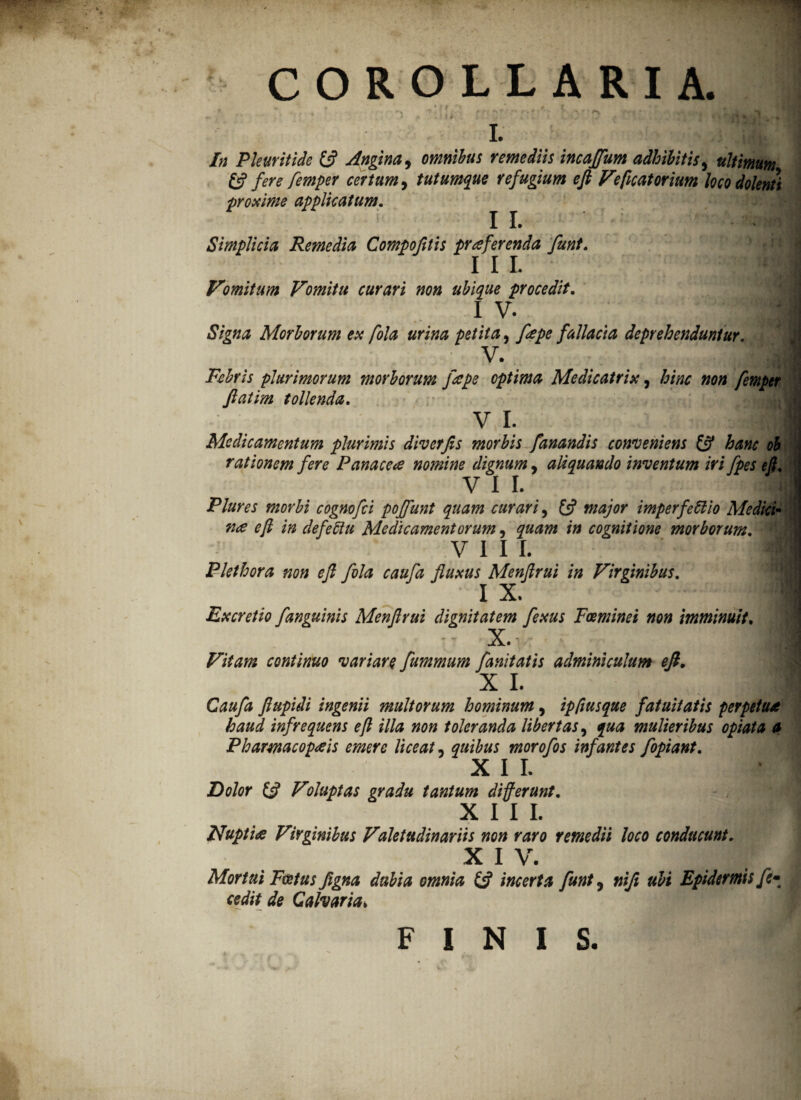 COROLLARIA.
I.
In Pleuritide & Angina, omnibus remediis incaſſum adhibitis, ultimum,
& fere ſemper certum, tutumque refugium eſt Veſicatorium loco dolenti
proxime applicatum.
II.
Simplicia Remedia Compoſitis præferenda ſunt.
III.
Vomitum Vomitu curari non ubique procedit.
IV.
Signa Morborum ex ſola urina petita, ſæpe fallacia deprehenduntur.
V.
Febris plurimorum morborum ſæpe optima Medicatrix, hinc non ſemper
ſtatim tollenda.
VI.
Medicamentum plurimis diverſis morbis ſanandis conveniens & hanc ob
rationem fere Panaceæ nomine dignum, aliquando inventum iri ſpes eſt.
VII.
Plures morbi cognoſci poſſunt quam curari, & major imperfectio Medici-
næ eſt in defectu Medicamentorum, quam in cognitione morborum.
VIII.
Plethora non eſt ſola cauſa fluxus Menſtrui in Virginibus.
IX.
Excretio ſanguinis Menſtrui dignitatem ſexus Fœminei non imminuit.
X.
Vitam continuo variare ſummum ſanitatis adminiculum eſt.
XI.
Cauſa ſtupidi ingenii multorum hominum, ipſiusque fatuitatis perpetuæ
haud infrequens eſt illa non toleranda libertas, qua mulieribus opiata a
Pharmacopæis emere liceat, quibus moroſos infantes ſopiant.
XII.
Dolor & Voluptas gradu tantum differunt.
XIII.
Nuptiæ Virginibus Valetudinariis non raro remedii loco conducunt.
XIV.
Mortui Fœtus ſigna dubia omnia & incerta ſunt, niſi ubi Epidermis ſe-
cedit de Calvaria.
FINIS.